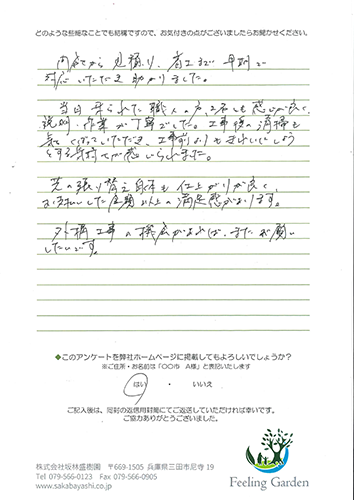 どのような些細なことでも結構ですので、お気付きの点がございましたらお聞かせください。
問合せから見積り、着工まで早期で
対応いただき助かりました。
当日来られた職人の方2名も感じが良く、
説明・作業が丁寧でした。工事後の清掃も
気をつかっていただき、工事前よりもきれいにしよう
とする気持ちが感じられました。
芝の張り替え自体も仕上がりが良く、
お支払いした金額以上の満足感があります。
外構工事の機会があれば、またお願い
したいです。
◆このアンケートを弊社ホームページに掲載してもよろしいでしょうか?
※ご住所・お名前は「〇〇市 A様」と表記いたします
はい ・ いいえ
ご記入後は、同封の返信用封筒にてご返送していただければ幸いです。
ご協力ありがとうございました。
株式会社坂林盛樹園 〒669-1505 兵庫県三田市尼寺 19
Tel 079-566-0123 Fax 079-566-0905
www.sakabayashi.co.jp
Feeling Garden